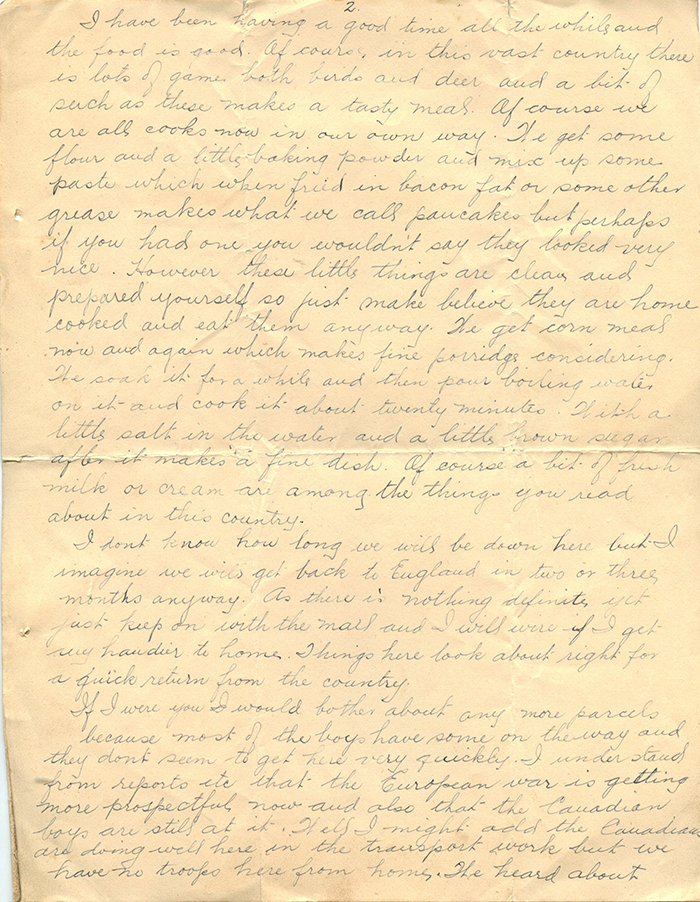 2.
I have been having a good time all the while and
the food is good. Of course, in this vast country there
is lots of game both birds and deer and a bit of
such as these makes a tasty meal. Of course we
are all cooks now in our own way. We get some
flour and a little baking powder and mix up some
paste which when fried in bacon fat or some other
grease makes what we call pancakes but perhaps
if you had one you wouldn't say they looked very
nice. However these little things are clean and
prepared yourself so just make believe they are home
cooked and eat them anyway. We get corn meal
now and again which makes fine porridge considering.
We soak it for a while and then pour boiling water
on it and cook it about twenty minutes. With a
little salt in the water and a little brown sugar
after it makes a fine dish. Of course a bit of fresh
milk or cream are among the things you read
about in this country.
I dont know how long we will be down here but I
imagine we will get back to England in two or three
months anyway. As there is nothing definite yet
just keep on with the mail and I will wire if I get
any handier to home. Things here look about right for
a quick return from the country.
If I were you I would bother about any more parcels
because most of the boys have some on the way and
they dont seem to get here very quickly. I understand
from reports etc that the European war is getting
more prospectful now and also that the Canadian
boys are still at it. Well I might add the Canadians
are doing well here in the transport work but we
have no troops here from home. We heard about